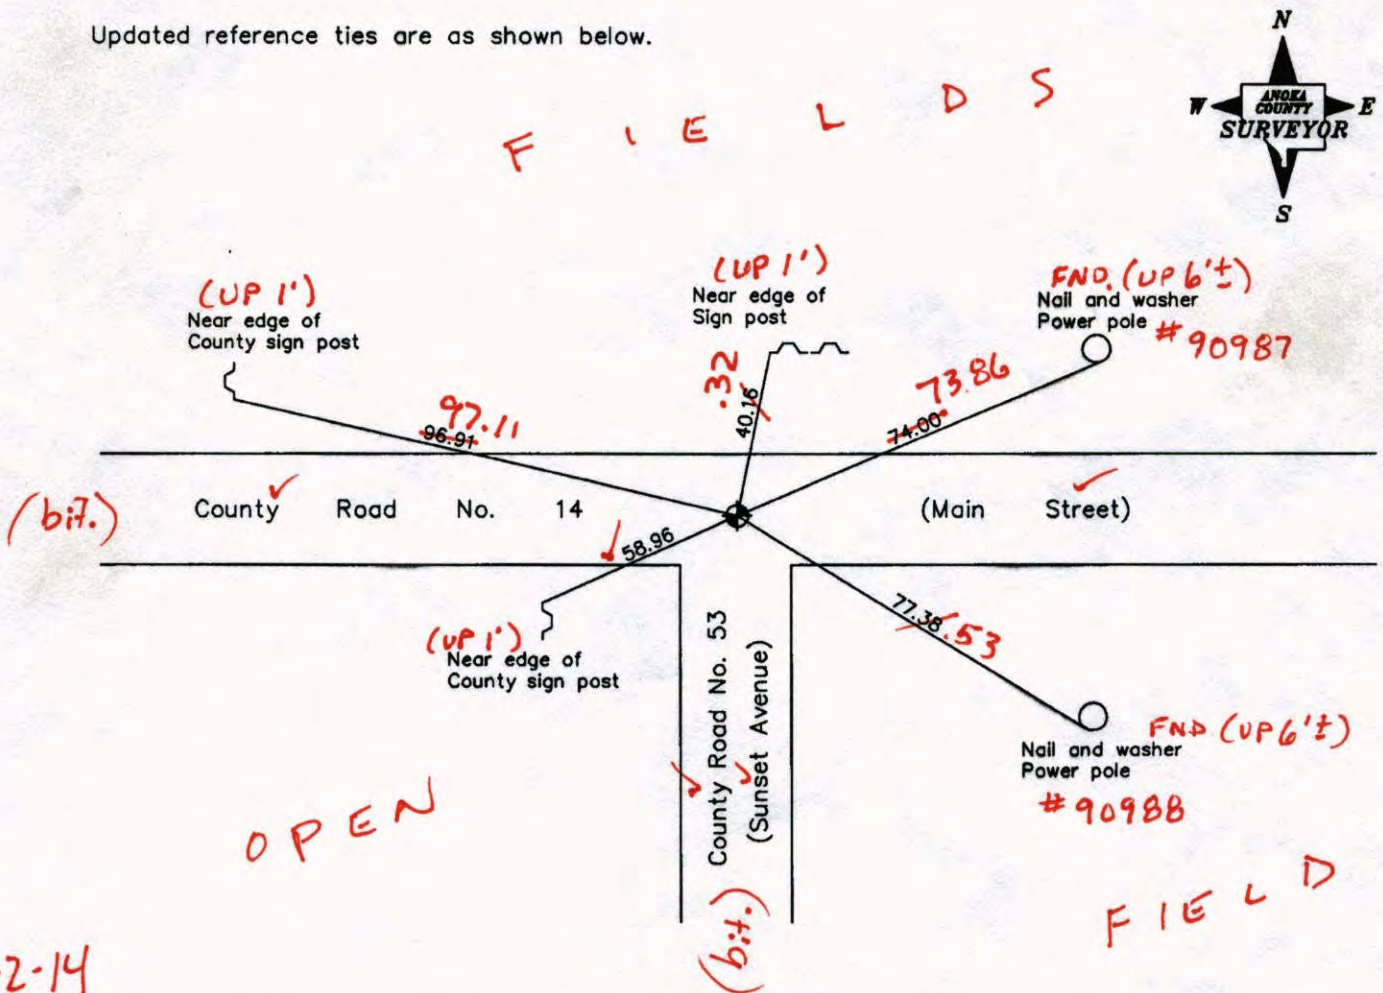 Updated reference ties are as shown below.
N
W
ANOKA
COUNTY
SURVEYOR
E
S
F I E L D S
(UP 1')
Near edge of
County sign post
(UP 1')
Near edge of
Sign post
FND. (UP 6'±)
Nail and washer
Power pole #90987
97.11
96.91
.32
40.16
73.86
74.00
(bit.)
County Road No. 14
(Main Street)
58.96
77.38 .53
(UP 1')
Near edge of
County sign post
County Road No. 53
(Sunset Avenue)
(bit.)
FND (UP 6'±)
Nail and washer
Power pole
#90988
OPEN
FIELD
2-14